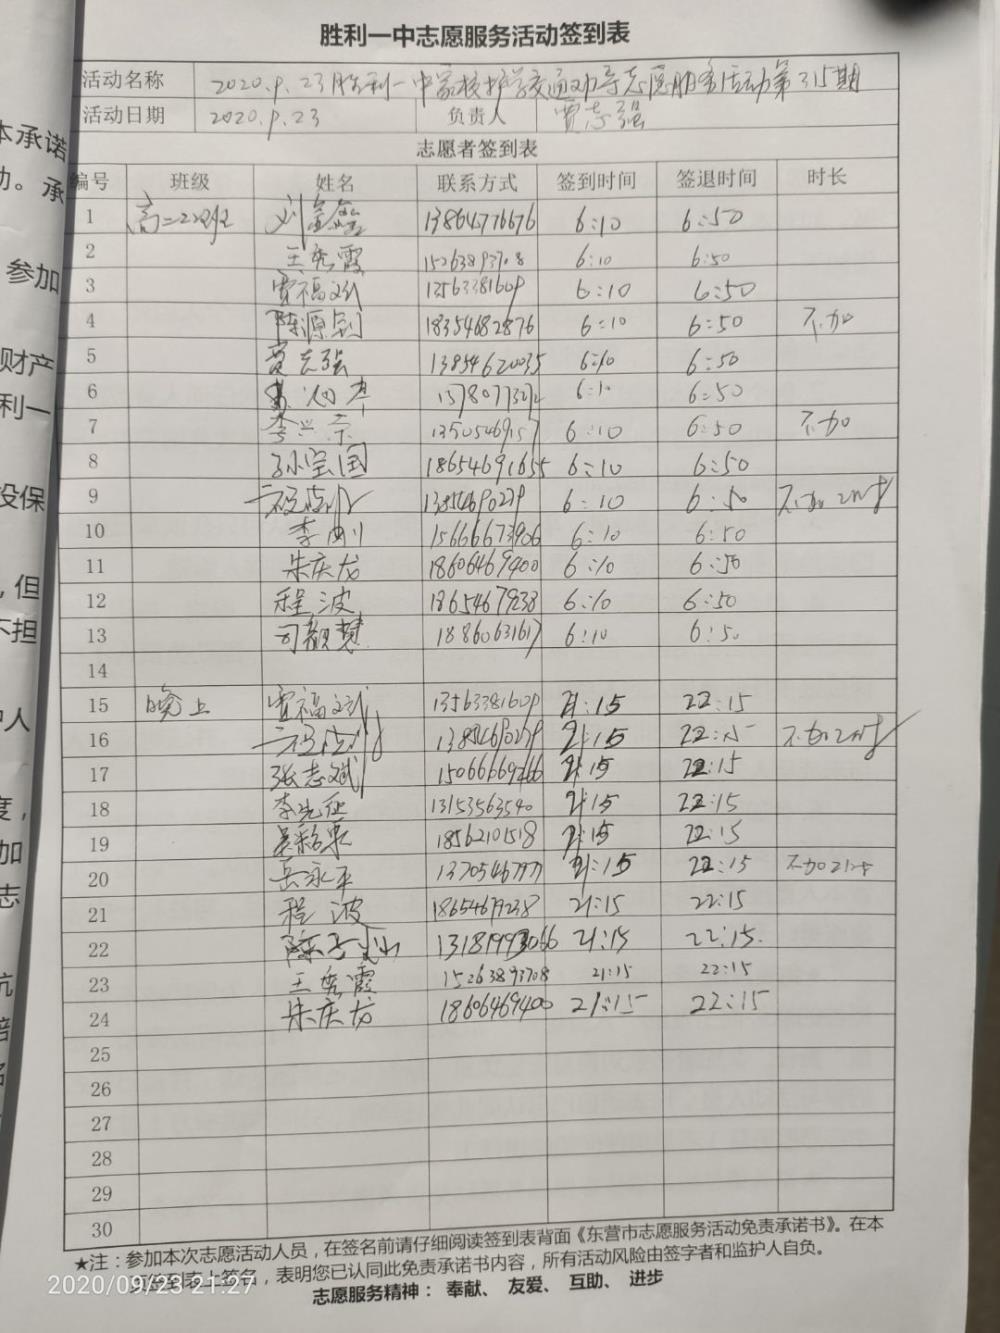 胜利一中志愿服务活动签到表
活动名称 2020.9.23胜利一中家校护学交通劝导志愿服务活动第315期
活动日期 2020.9.23 负责人 贾志强
志愿者签到表
编号 班级 姓名 联系方式 签到时间 签退时间 时长
1 高二22班 刘金鑫 13864776676 6:10 6:50
2 王秀霞 15263893708 6:10 6:50
3 贾福斌 13563381609 6:10 6:50
4 陈源钊 18354682876 6:10 6:50 不加
5 贾志强 13854620035 6:10 6:50
6 6:10 6:50
7 李兴宗 6:10 6:50 不加
8 孙宝国 18654691655 6:10 6:50
9 13854690279 6:10 6:50 不加2时
10 李刚 15666673906 6:10 6:50
11 朱庆龙 18606469400 6:10 6:50
12 程波 18654679238 6:10 6:50
13 司毅慧 18860631617 6:10 6:50
14
15 晚上 贾福斌 13563381609 21:15 22:15
16 13854690279 21:15 22:15 不加2时
17 张志斌 15066669266 21:15 22:15
18 李先征 13153563540 21:15 22:15
19 21:15 22:15
20 岳永平 21:15 22:15 不加2小时
21 程波 18654679238 21:15 22:15
22 13181993066 21:15 22:15
23 王秀霞 15263893708 21:15 22:15
24 朱庆龙 18606469400 21:15 22:15
25
26
27
28
29
30
★注：参加本次志愿活动人员，在签名前请仔细阅读签到表背面《东营市志愿服务活动免责承诺书》。在本
签名，表明您已认同此免责承诺书内容，所有活动风险由签字者和监护人自负。
志愿服务精神： 奉献、 友爱、 互助、 进步
2020/09/23 21:27
本承诺
动。承
参加
财产
利一
投保
，但
不担
人
度，
加
志
抗